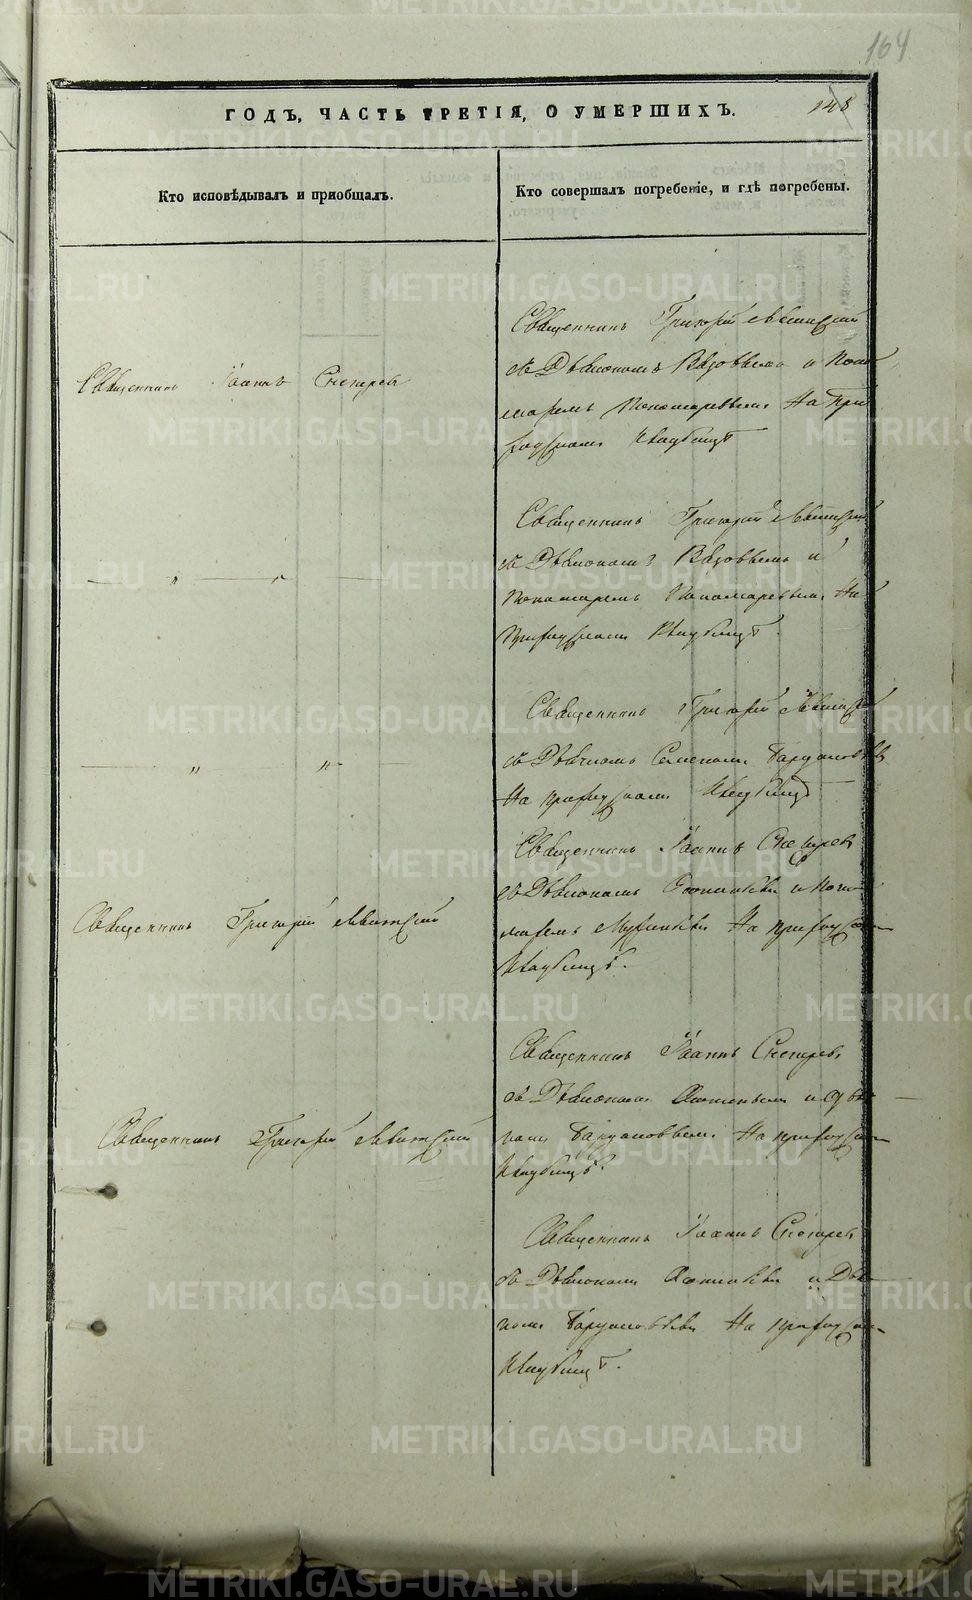 164
148
ГОДЪ, ЧАСТЬ ТРЕТІЯ, О УМЕРШИХЪ.
Кто исповѣдывалъ и приобщалъ.
Кто совершалъ погребеніе, и гдѣ погребены.
Священникъ Іоаннъ Снегирев
Священникъ Григорій Левитскій
съ Діакономъ и Поно-
маремъ Пономаревымъ На При-
ходскомъ Кладбищѣ
— " — " —
Священникъ Григорій Левитскій
съ Діакономъ и
Пономаремъ Пономаревымъ На
Приходскомъ Кладбищѣ.
— " — " —
Священникъ Григорій Левитскій
съ Дьячкомъ
На приходскомъ Кладбищѣ
Священникъ Григорій Левитскій
Священникъ Іоаннъ Снегирев
съ Діакономъ и Поно-
маремъ На приходском
Кладбищѣ.
Священникъ Григорій Левитскій
Священникъ Іоаннъ Снегирев
съ Діакономъ и Дьяч-
комъ На приходском
Кладбищѣ.
Священникъ Іоаннъ Снегирев
съ Діакономъ и Дьяч-
комъ На приходском
Кладбищѣ.
METRIKI.GASO-URAL.RU